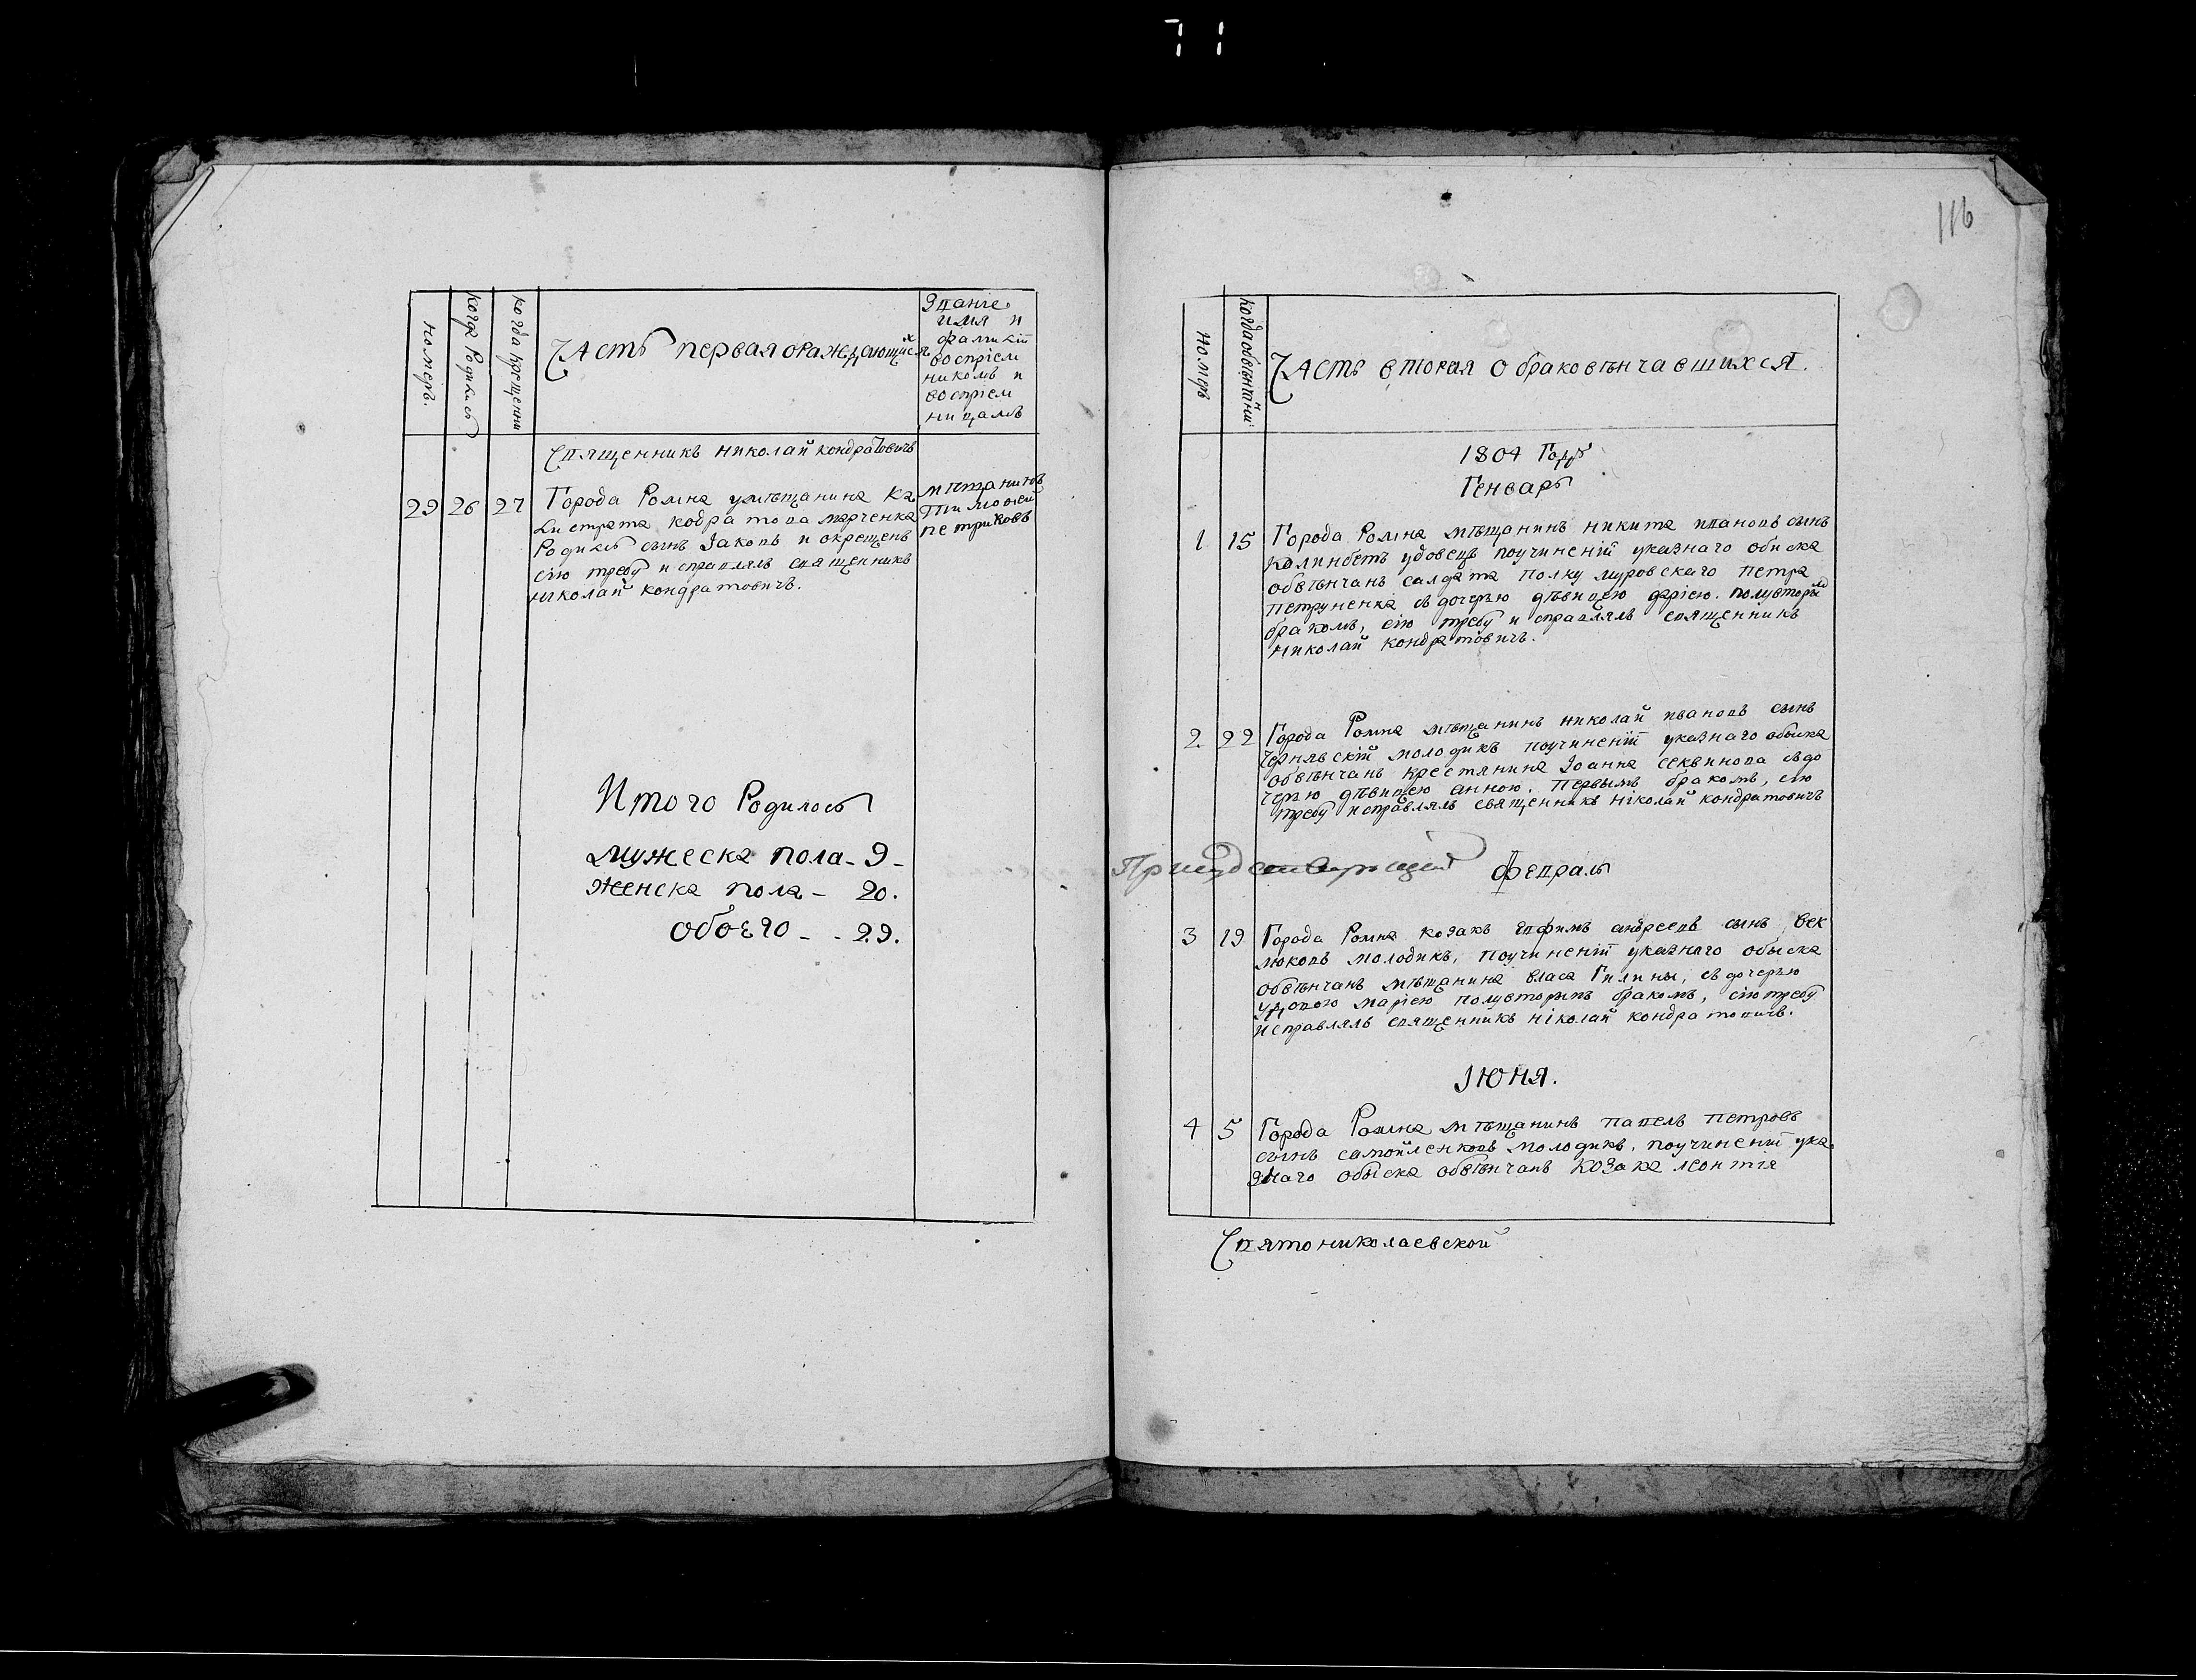 71
номеръ.
когда Родились
когда крещенни
Часть первая ораждающихся
Званіе.
имя и
фамилій
воспріем
никомъ и
воспріем
ницамъ
Священникъ николай кондратовичъ
29 26 27 Города Ромна умѣщанина Ка
листрата кодратова марченка
Родился сынъ Іаковъ и окрещенъ
сію требу исправлялъ священникъ
николай кондратовичъ.
мѣщанинъ
Тимофей
петриковъ
Итого Родилось
мужеска пола - 9 -
Женска пола - 20.
обоего - - 29.
116
номеръ
когда обвѣнчани
Часть вторая о браковѣнчавшихся.
1804 Годъ
Генварь
1 15 Города Ромна мѣщанинъ никита ивановъ сынъ
удовецъ поучиненій указнаго обиска
обвѣнчанъ салдата полку муровскаго петра
петруненка съ дочерью дѣвицею дарією. полувторымъ
бракомъ, сію требу исправлялъ священникъ
николай кондратовичъ.
2 22 Города Ромна мѣщанинъ николай ивановъ сынъ
чернявскій молодикъ поучиненій указнаго обыска
обвѣнчанъ крестянина Іоанна секвинова съ до
черью дѣвицею анною. первымъ бракомъ, сію
требу исправлялъ священникъ ніколай кондратовичъ
Присудствующій
февраль
3 19 Города Ромна козакъ евфимъ андреевъ сынъ век
люковъ молодикъ, поучиненій указнаго обыска
обвѣнчанъ мѣщанина власа Гилины, съ дочерью
удовою марією полувторымъ бракомъ, сію требу
исправлялъ священникъ ніколай кондратовичъ.
Іюня.
4 5 Города Ромна мѣщанинъ павелъ петровъ
сынъ самойленковъ молодикъ, поучиненій ука
знаго обыска обвѣнчанъ козака леонтія
Святониколаевской